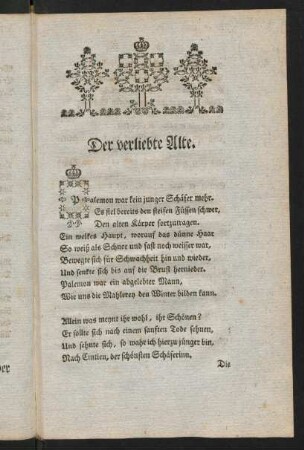 Der verliebte Alte.
Palemon war kein junger Schäfer mehr.
Es fiel bereits den steifen Füssen schwer,
Den alten Körper fortzutragen.
Ein welkes Haupt, worauf das dünne Haar
So weiß als Schnee und fast noch weisser war,
Bewegte sich für Schwachheit hin und wieder,
Und senkte sich bis auf die Brust hernieder.
Palemon war ein abgelebter Mann,
Wie uns die Mahlerey den Winter bilden kann.
Allein was meynt ihr wohl, ihr Schönen?
Er sollte sich nach einem sanften Tode sehnen,
Und sehnte sich, so wahr ich hierzu jünger bin,
Nach Cintien, der schönsten Schäferinn.
Die